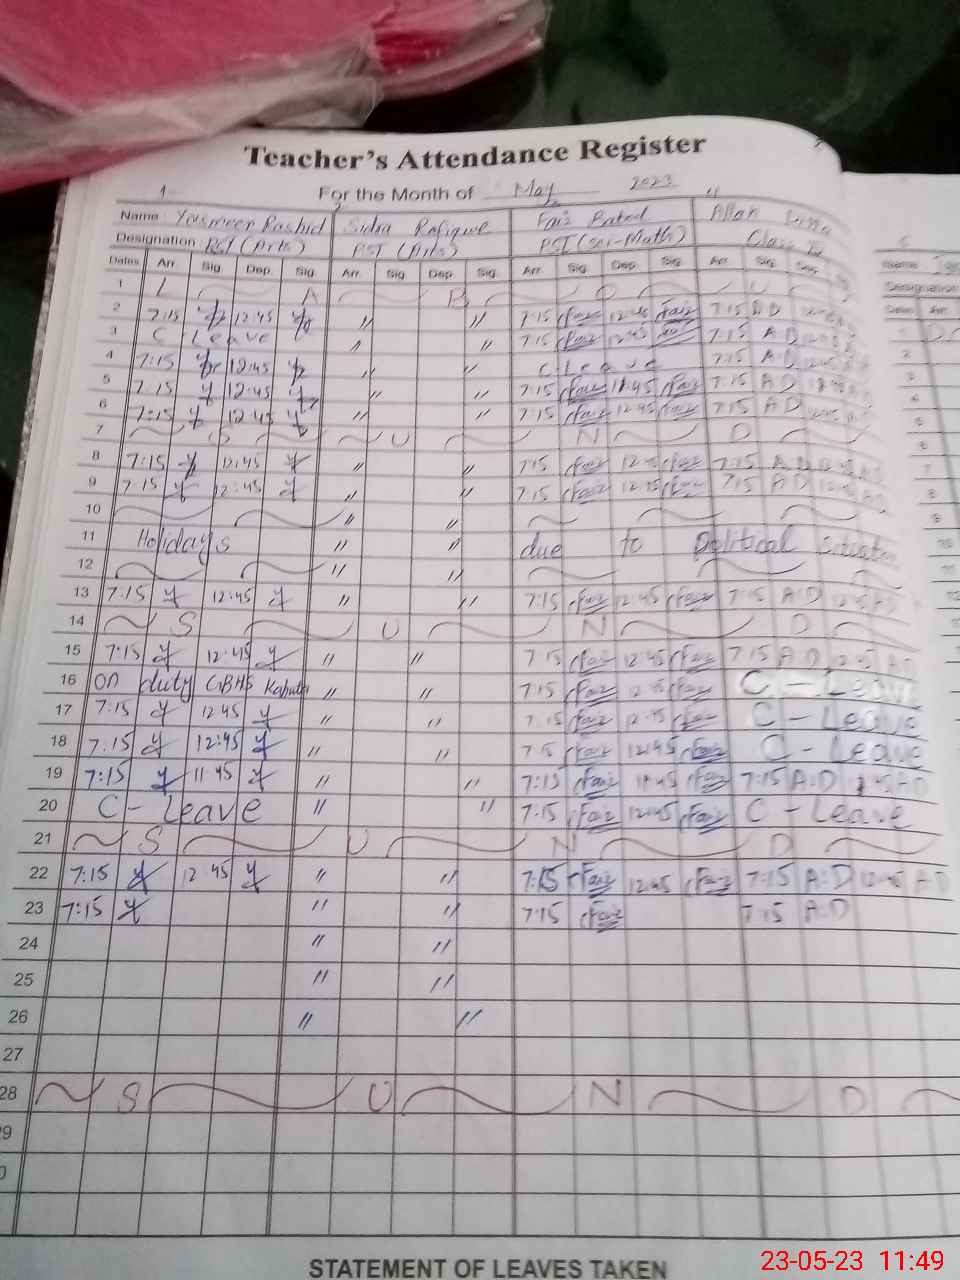 Teacher's Attendance Register
1 For the Month of May 2023 "
Name Yasmeen Rashid Sidra Rafique Faiz Allah
Designation PST (Arts) PST (Arts) PST (Sci-Math) Class
Dates Arr. Sig. Dep. Sig. Arr. Sig. Dep. Sig. Arr. Sig. Dep. Sig. Arr. Sig. Dep.
1 L A B O U
2 7:15 12:45 " " 7:15 Faiz 12:45 Faiz 7:15 A D
3 C Leave " " 7:15 Faiz 12:45 7:15 A D 12:45
4 7:15 12:45 " " C Leave 7:15 A D 12:45
5 7.15 y 12:45 y " " 7:15 Faiz 11:45 Faiz 7:15 A D
6 7:15 y 12:45 y " " 7:15 Faiz 12:45 Faiz 7:15 A D
7 S U N D
8 7:15 y 12:45 y " " 7:15 Faiz 12:45 Faiz 7:15 A D 12:45
9 7:15 y 12:45 y " " 7:15 Faiz 12:45 Faiz 7:15 A D 12:45
10 " "
11 Holidays " " due to Political Situation
12 " "
13 7:15 y 12:45 y " " 7:15 Faiz 12:45 Faiz 7:15 A:D 12:45 A D
14 S U N D
15 7:15 y 12:45 y " " 7:15 Faiz 12:45 Faiz 7:15 A D 12:45 A D
16 on duty GBHS " " 7:15 Faiz 12:45 Faiz C - Leave
17 7:15 y 12:45 y " " 7:15 Faiz 12:45 Faiz C - Leave
18 7:15 y 12:45 y " " 7:15 Faiz 12:45 Faiz C - Leave
19 7:15 y 11:45 y " " 7:15 Faiz 11:45 Faiz 7:15 A:D 11:45 A D
20 C - Leave " " 7:15 Faiz 12:45 Faiz C - Leave
21 S U N D
22 7:15 y 12:45 y " " 7:15 Faiz 12:45 Faiz 7:15 A:D 12:45 A D
23 7:15 y " " 7:15 Faiz 7:15 A:D
24 " "
25 " "
26 " "
27
28 S U N D
STATEMENT OF LEAVES TAKEN
23-05-23 11:49